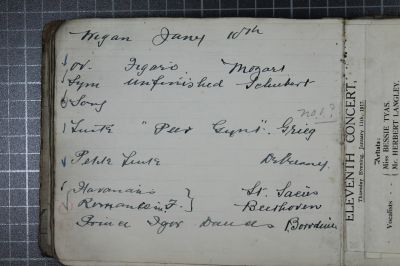 Wigan Jany 10th
Ov. Figaro Mozart
Sym unfinished Schubert
Song
no 1?
Suite "Peer Gynt". Grieg
Petite Suite Debussy
Havanaise } St. Saens
Romance in F. } Beethoven
Prince Igor Dances Borodine
ELEVENTH CONCERT,
Thursday Evening, January 11th, 1917.
Artists:
Vocalists
Miss BESSIE TYAS.
Mr. HERBERT LANGLEY.